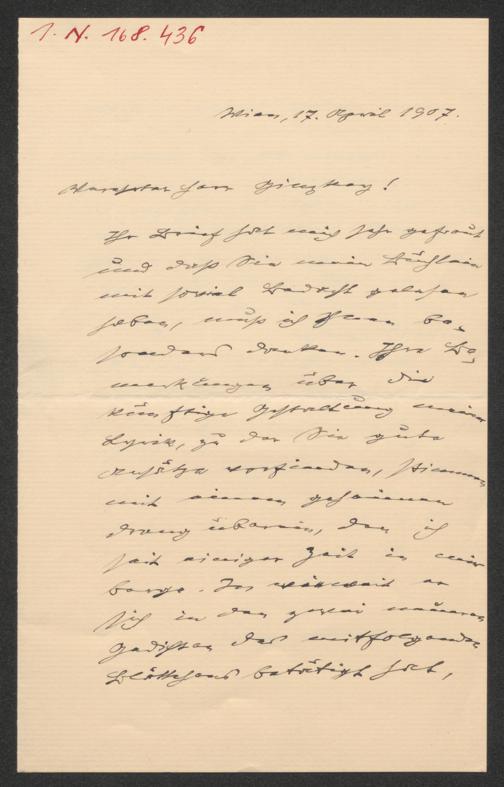 I. N. 168.436
Wien, 17. April 1907.
Verehrter Herr Ginzkey!
Ihr Brief hat mich sehr gefreut
und daß Sie mein Büchlein
mit soviel Bedacht gelesen
haben, muß ich Ihnen be-
sonders danken. Ihre Be-
merkungen über die
künftige Gestaltung meiner
Lyrik, zu der Sie gute
Ansätze vorfinden, stimmen
mit einem geheimen
Drang überein, den ich
seit einiger Zeit in mir
berge. In wieweit er
sich in den zwei neueren
Gedichten des mitfolgenden
Blättchens betätigt hat,